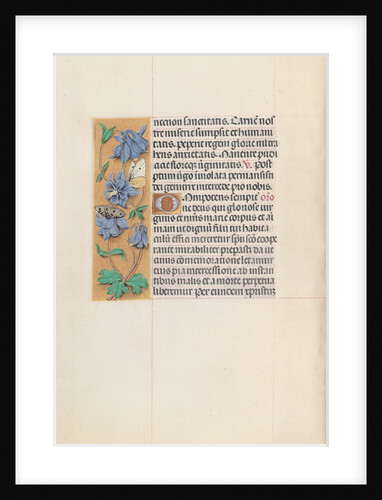 necnon sanctitatis. Carnē nos
tre miserie sumpsit et humani
tatis. Peperit regem glorie mitra
hens anxietatis. Manente pudi
cicie floreq̄ ūginitatis. V. Post
partum v̄go inviolata permansisti
dei genitrix intercede pro nobis.
Omnipotens sempit̄ orō
ne deus qui gloriose vir
ginis et m̄ris marie corpus et ai
mam ut dignū filii tui habita
culū effici mereretur spū scō coope
rante mirabiliter preparasti da ut
cuius cōmemoratione letamur
eius pia intercessione ab instan
tibus malis et a morte perpetua
liberemur Per eundem xpristū